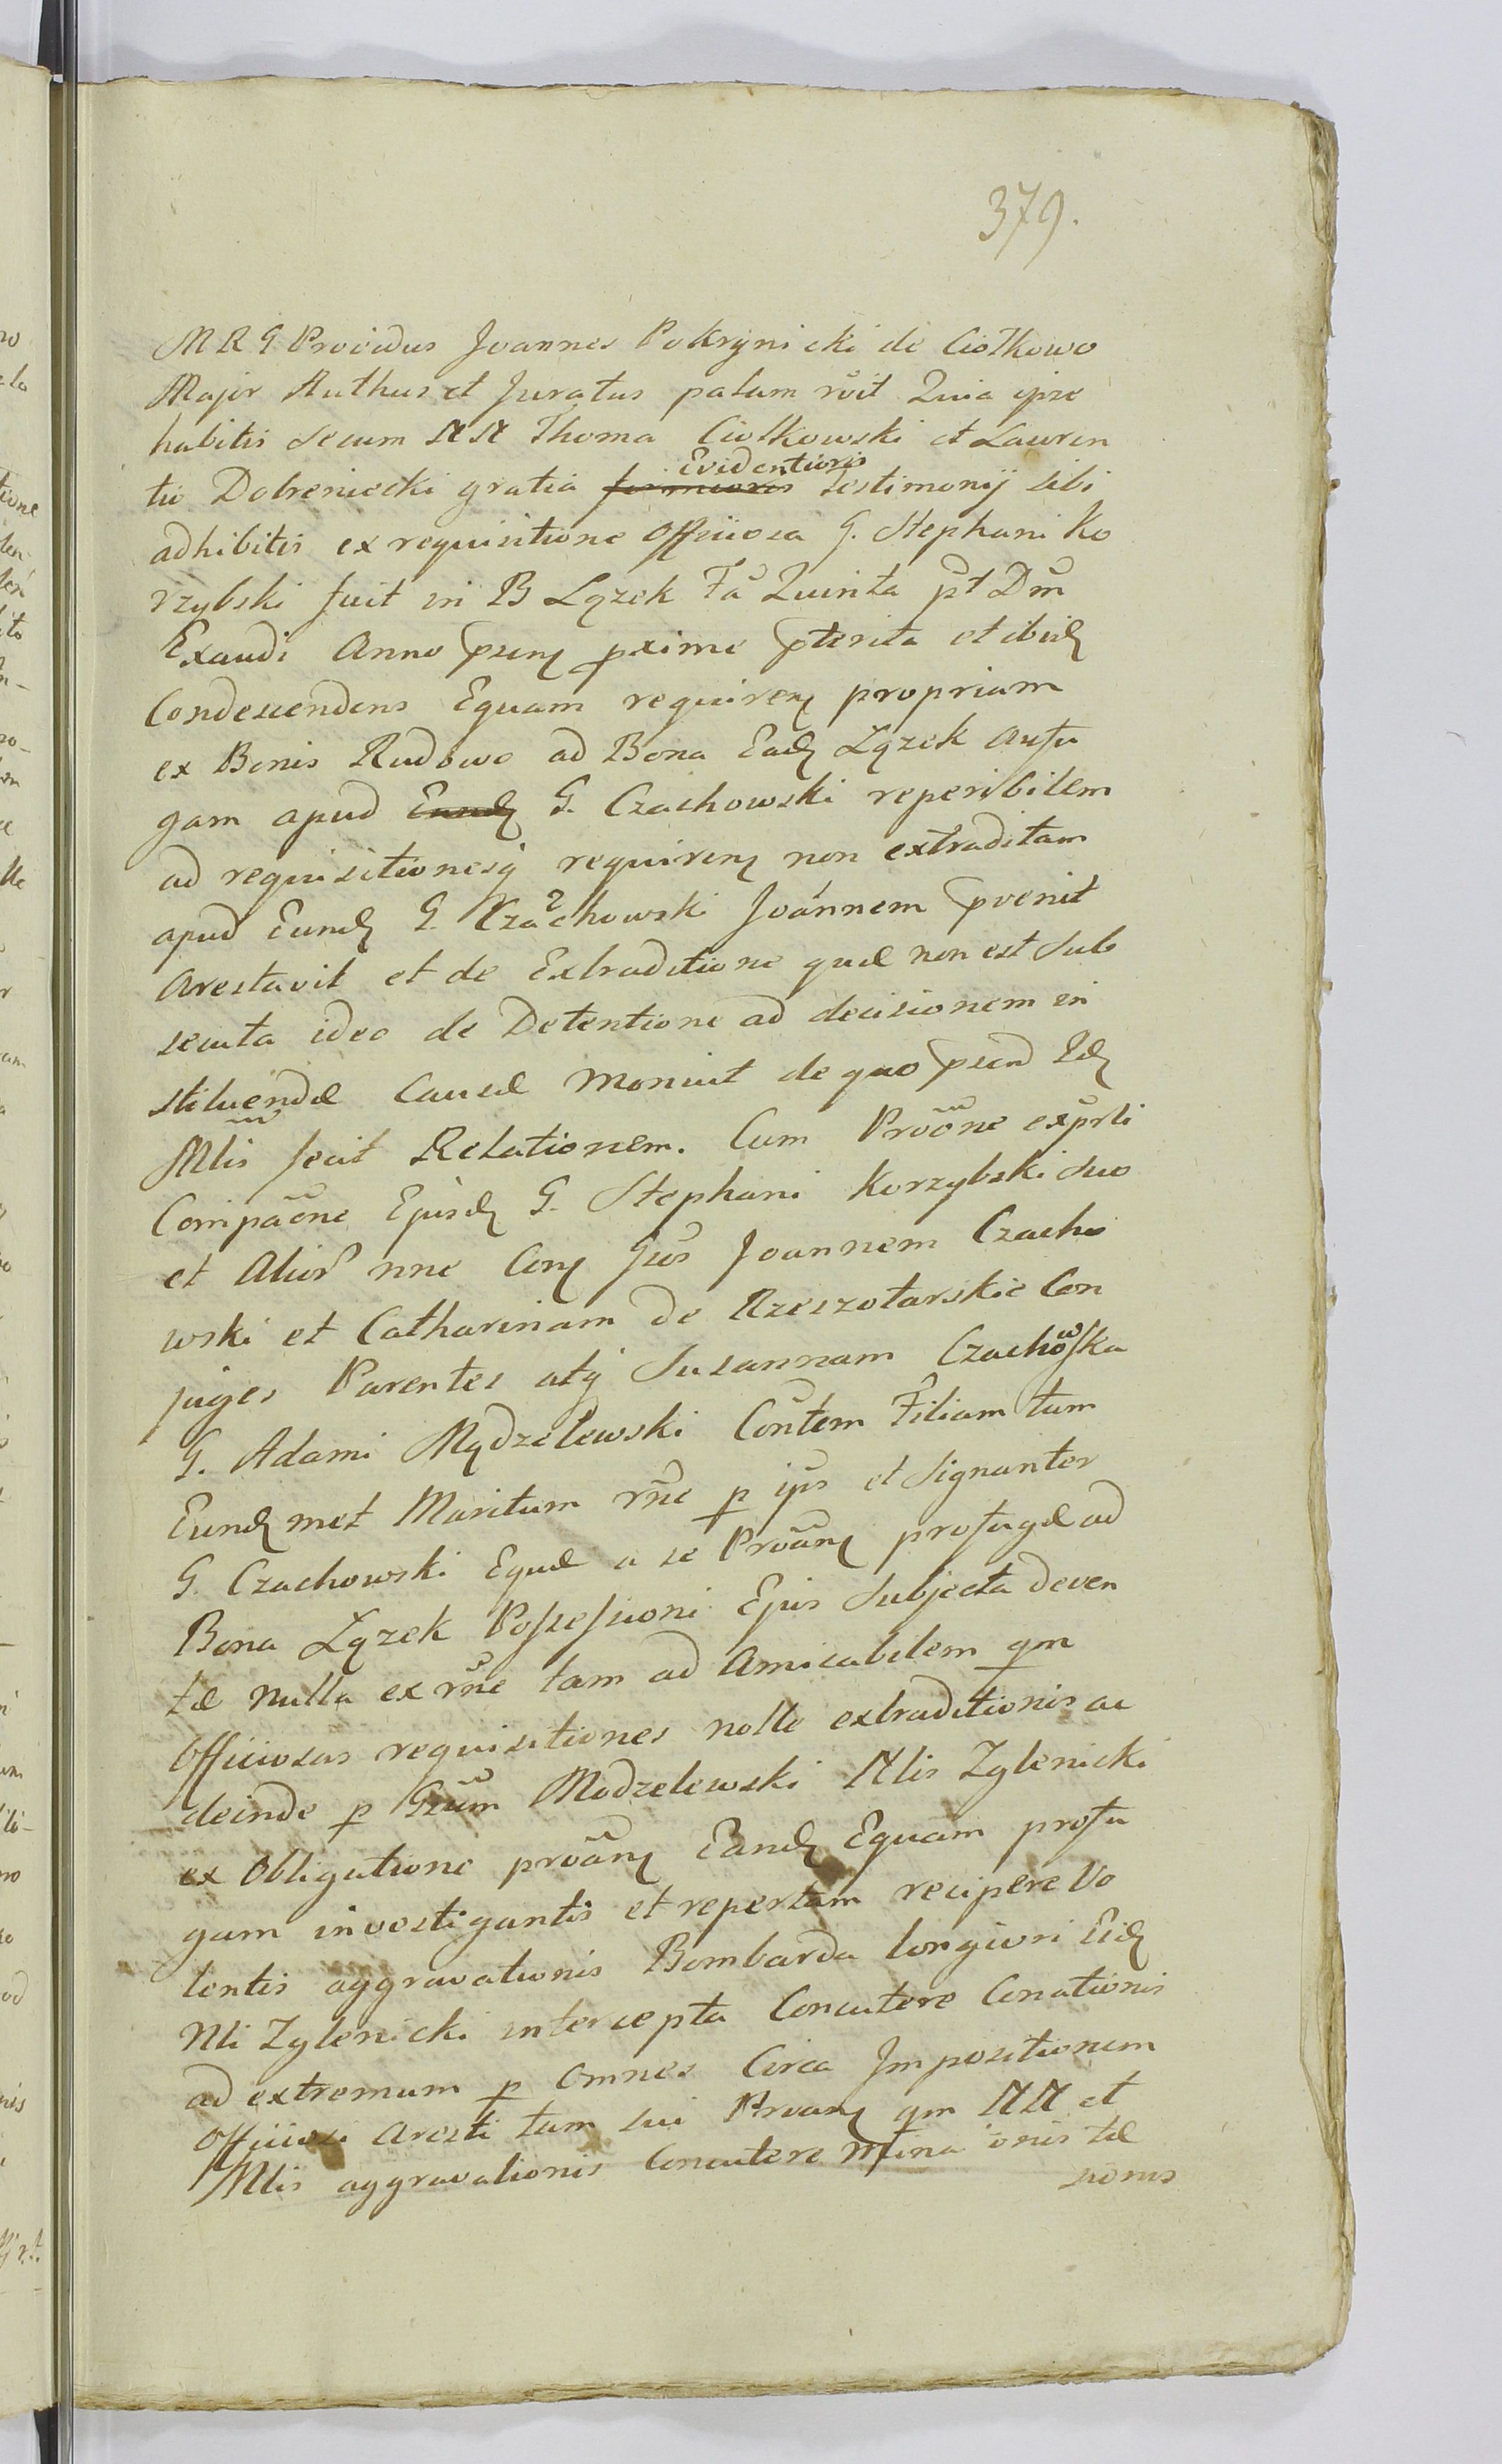 379.
M R G Providus Joannes Pokrynicki de Ciołkowo
Major Authus et Juratus palam rōit Quia ipse
habitis Secum NN Thoma Ciołkowski et Lauren
tio Dobreniecki gratia Evidentioris testimonij sibi
adhibitis ex requisitione Officiosa G. Stephani Ko
rzybski fuit in B Lązek Fā Quinta pt Dm̄
Exaudi Anno pręn pxime pterita et ibid
Condescendens Equam requiren propriam
ex Bonis Rudowo ad Bona Ead Lązek aufu
gam apud Eund G. Czachowski reperibilem
ad requisitionesq requiren non extraditam
apud Eund G. Czachowski Joannem pvenit
Arestavit et de Extraditione quæ non est Sub
secuta ideo de Detentione ad decisionem in
stituendæ Causæ Monuit de quo psen
Mlis fecit Relationem. Cum Proōne exprti
Compaōne Ejusd G. Stephani Korzybski suo
et Alior nne Con Gos Joannem Czacho
wski et Catharinam de Rzeszotarskie Con
juges Parentes atq Susannam Czachowska
G. Adami Mądzelewski Contem Filiam tum
Eund met Maritum rne p ips et Signanter
G. Czachowski Equæ a se Proān profugæ ad
Bona Lązek Possessioni Ejus Subjecta deven
tæ nulla ex rne tam ad Amicabilem qm
Officiosas requisitiones nolle extraditionis ac
deinde p Gsum Modzelewski Nlis Zglenicki
ex Obligatione proān Eand Equam profu
gam investigantis et repertam recipere Vo
lentis aggravationis Bombarda longiori Eid
Nli Zglenicki intercepta Concutere Conationis
ad extremum p Omnes Circa Impositionem
Officiosi Aresti tam sui Proan qm NN et
Mlis aggravationis Concutere Mina onis tæ